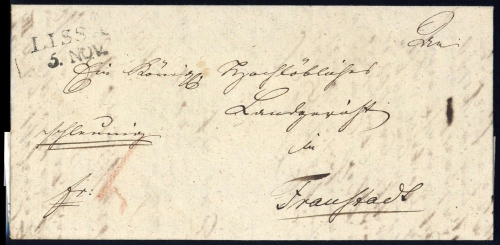 LISSA
5. NOV.
An
Ein Königl. Hochlöbliches
Landgericht
schleunig
in
fr:
Fraustadt